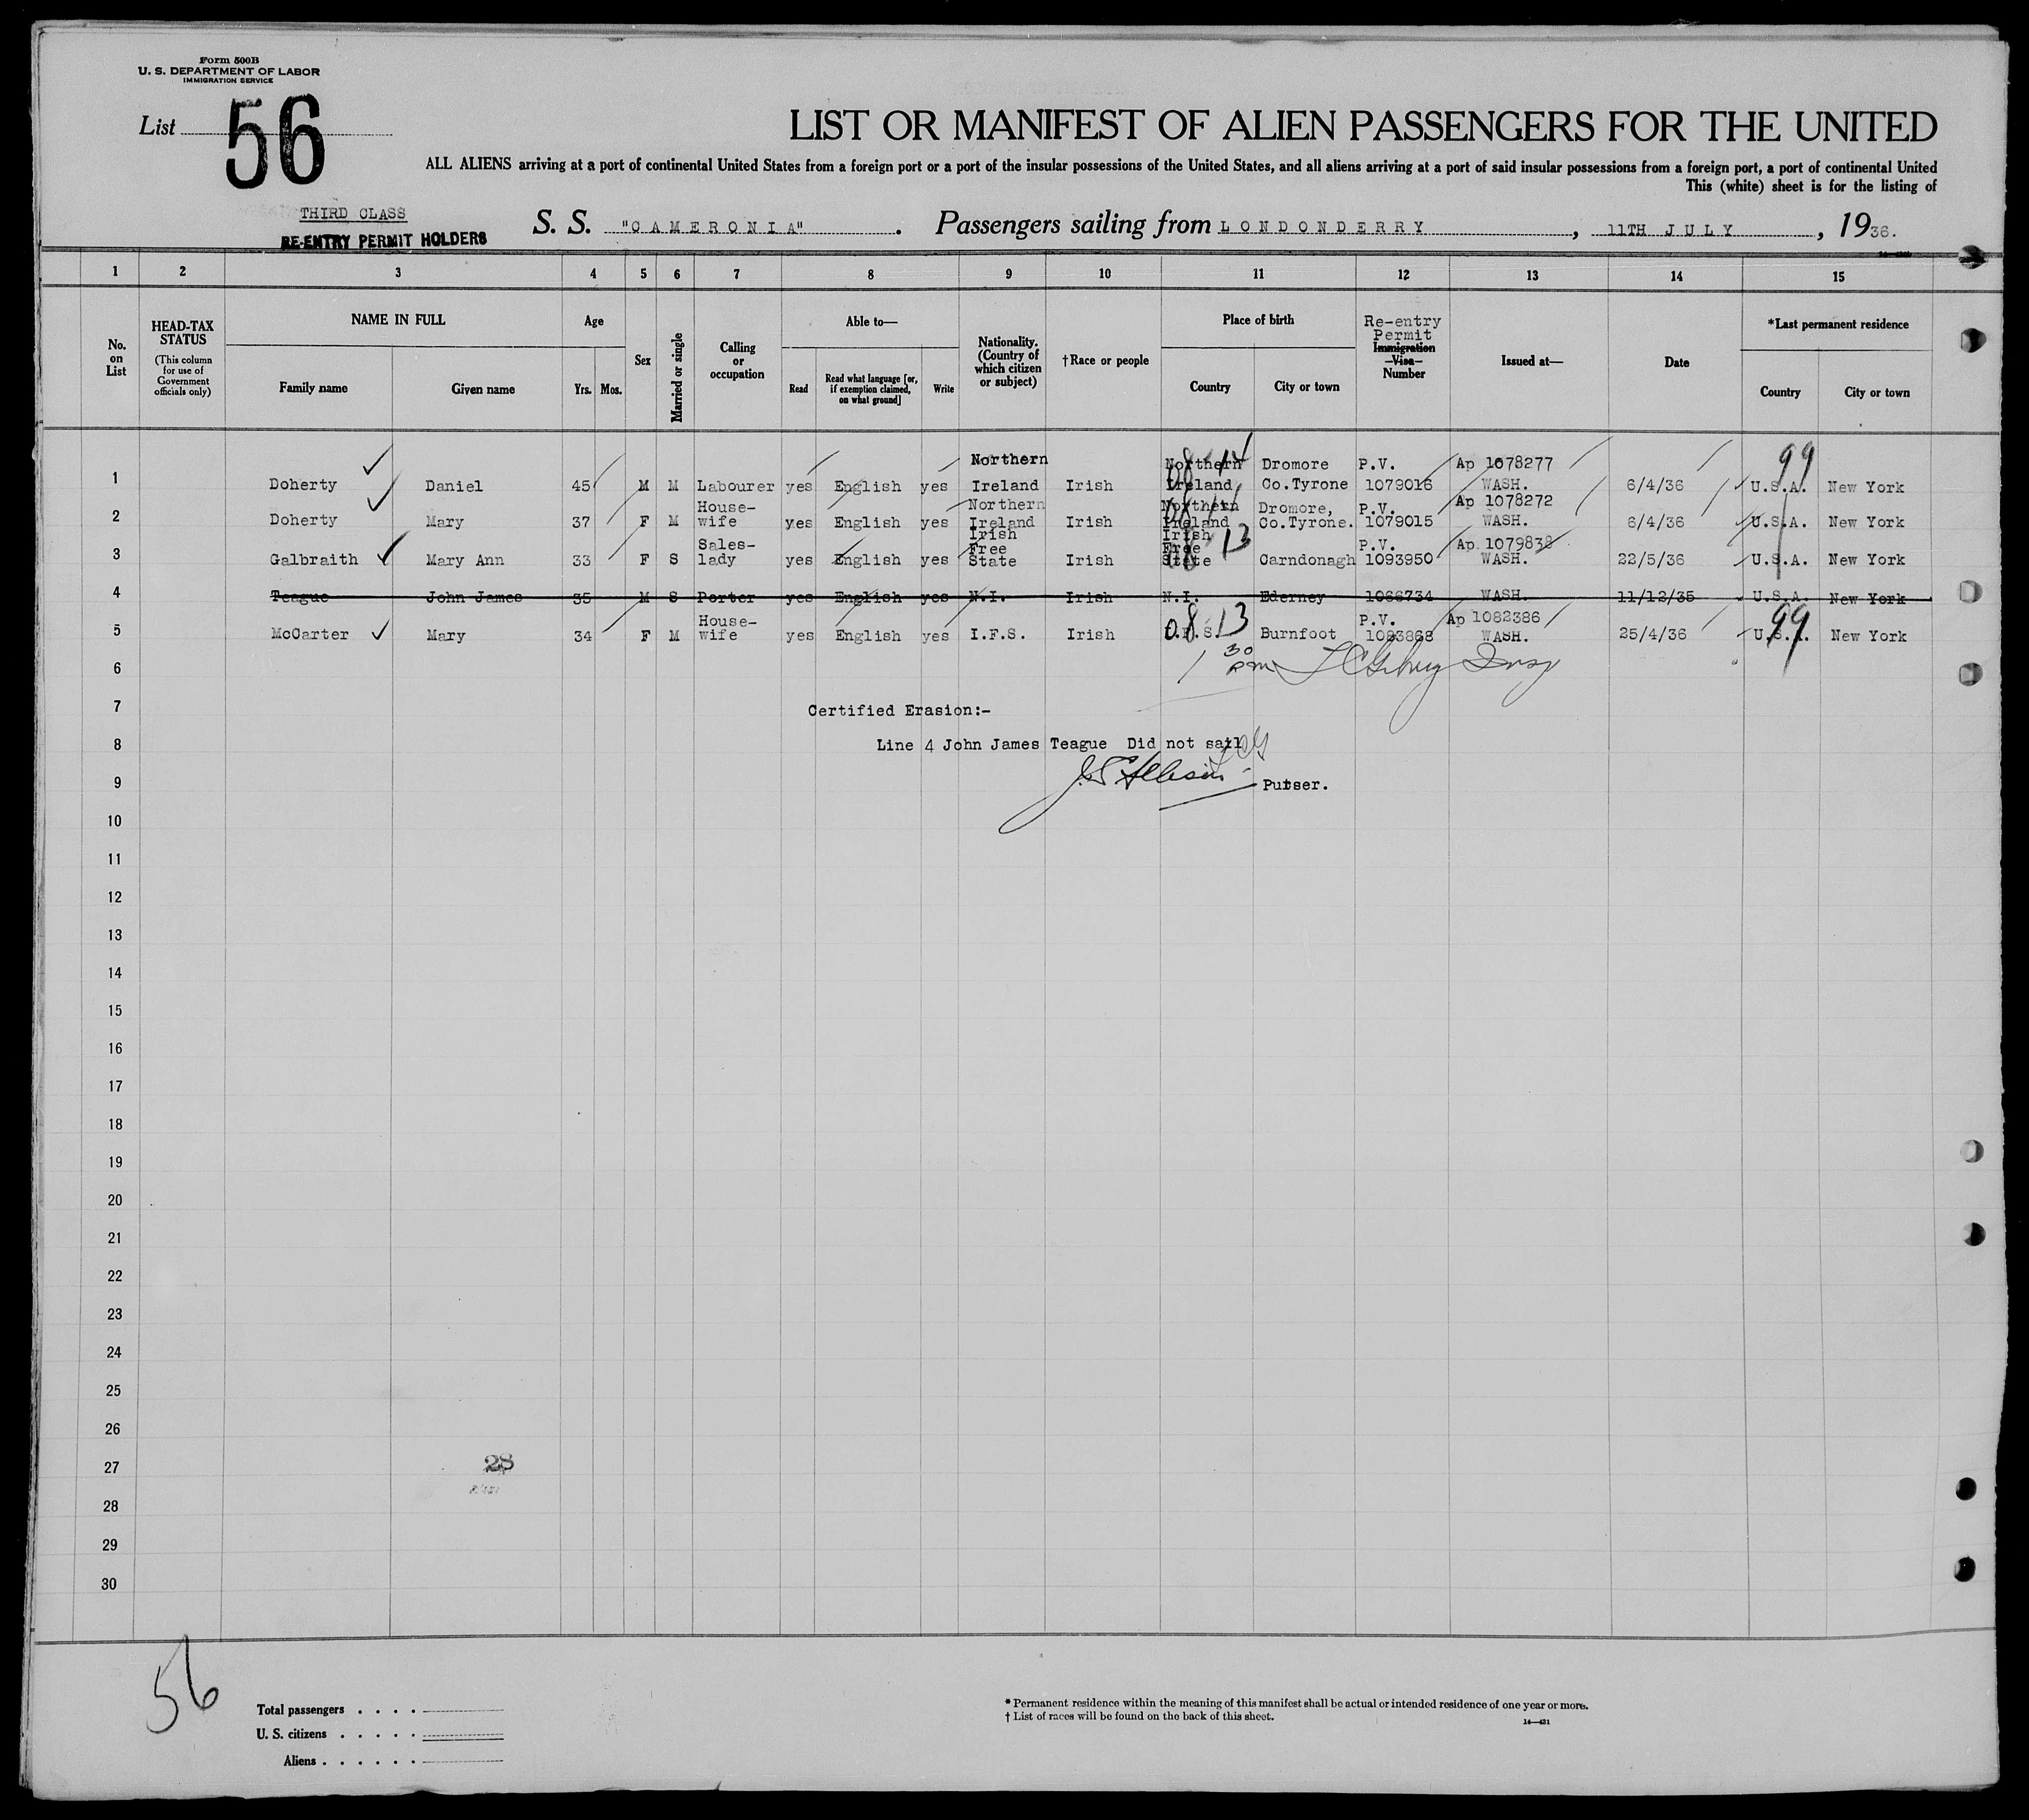 Form 500B
U. S. DEPARTMENT OF LABOR
IMMIGRATION SERVICE
List 56
LIST OR MANIFEST OF ALIEN PASSENGERS FOR THE UNITED
ALL ALIENS arriving at a port of continental United States from a foreign port or a port of the insular possessions of the United States, and all aliens arriving at a port of said insular possessions from a foreign port, a port of continental United
This (white) sheet is for the listing of
THIRD CLASS
RE-ENTRY PERMIT HOLDERS
S. S. "CAMERONIA". Passengers sailing from LONDONDERRY, 11TH JULY, 1936.
1 2 3 4 5 6 7 8 9 10 11 12 13 14 15
No. on List
HEAD-TAX STATUS (This column for use of Government officials only)
NAME IN FULL
Family name Given name
Age
Yrs. Mos.
Sex
Married or single
Calling or occupation
Able to—
Read Read what language [or, if exemption claimed, on what ground] Write
Nationality. (Country of which citizen or subject)
†Race or people
Place of birth
Country City or town
Re-entry Permit Immigration Visa Number
Issued at—
Date
*Last permanent residence
Country City or town
1 Doherty Daniel 45 M M Labourer yes English yes Northern Ireland Irish Northern Ireland Dromore Co.Tyrone P.V. 1079016 Ap 1078277 WASH. 6/4/36 U.S.A. New York
08 14 99
2 Doherty Mary 37 F M House-wife yes English yes Northern Ireland Irish Northern Ireland Dromore, Co.Tyrone. P.V. 1079015 Ap 1078272 WASH. 6/4/36 U.S.A. New York
3 Galbraith Mary Ann 33 F S Sales-lady yes English yes Irish Free State Irish Irish Free State Carndonagh P.V. 1093950 Ap 1079838 WASH. 22/5/36 U.S.A. New York
13
4 Teague John James 35 M S Porter yes English yes N.I. Irish N.I. Ederney 1066734 WASH. 11/12/35 U.S.A. New York
5 McCarter Mary 34 F M House-wife yes English yes I.F.S. Irish I.F.S. Burnfoot P.V. 1083868 Ap 1082386 WASH. 25/4/36 U.S.A. New York
08 13 99
6
1 30 pm
7 Certified Erasion:-
8 Line 4 John James Teague Did not sail
9 Purser.
10
11
12
13
14
15
16
17
18
19
20
21
22
23
24
25
26
27
28
28
29
30
56
Total passengers . . . .
U. S. citizens . . . . .
Aliens . . . . . .
* Permanent residence within the meaning of this manifest shall be actual or intended residence of one year or more.
† List of races will be found on the back of this sheet.
14—421